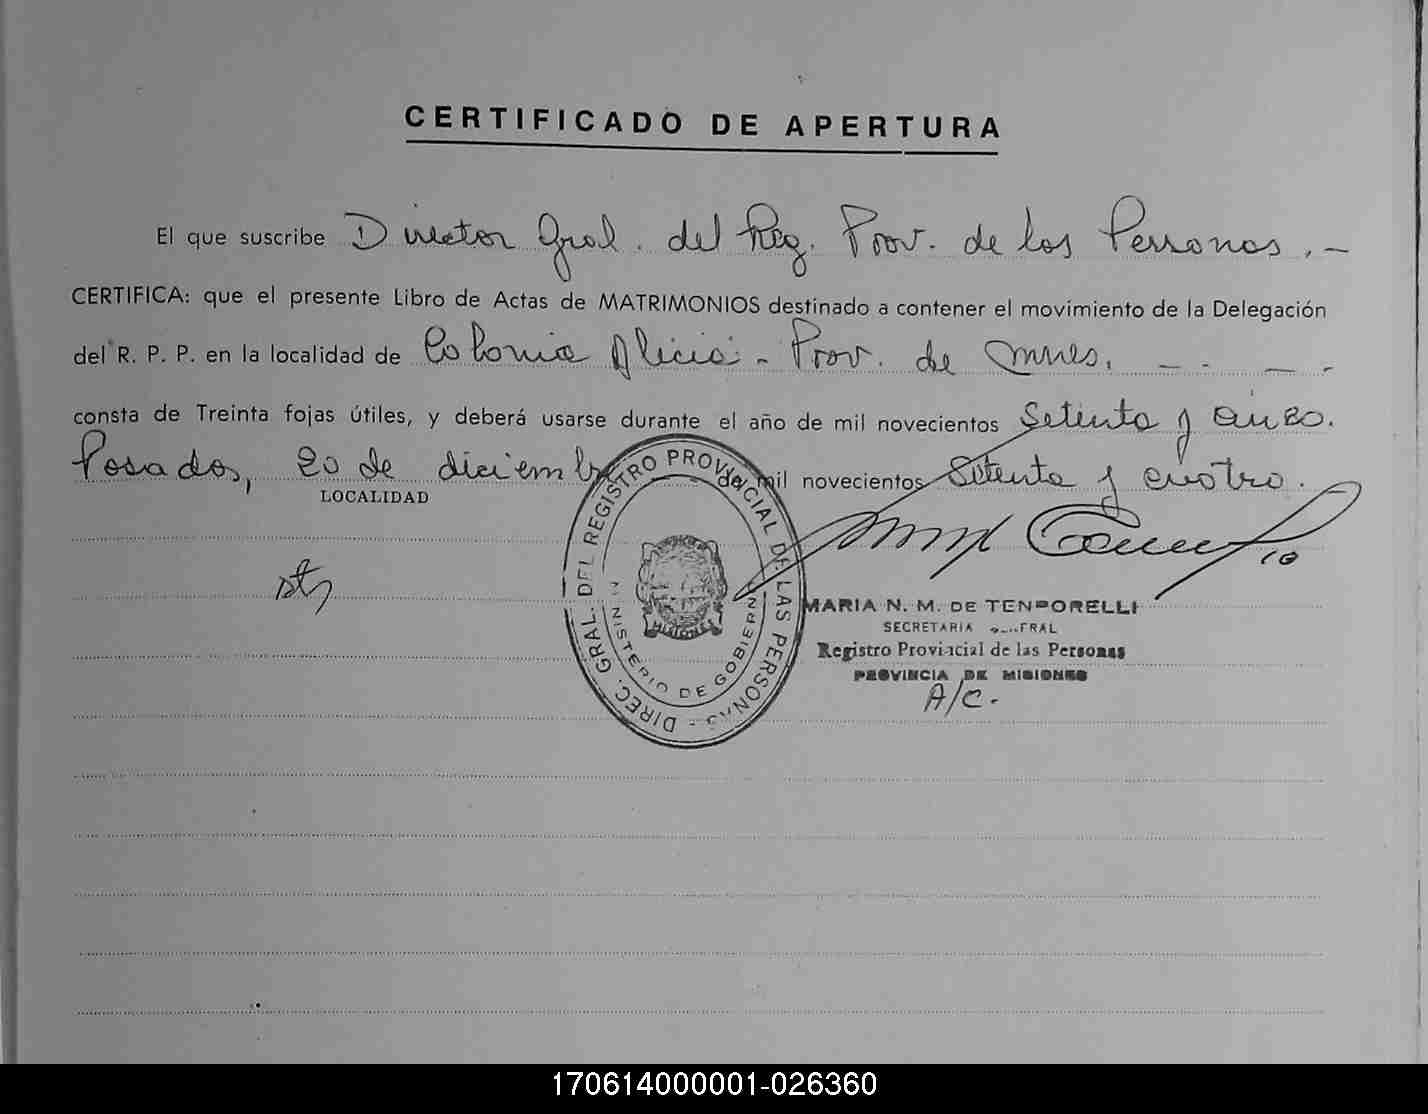 CERTIFICADO DE APERTURA
El que suscribe Director Gral. del Reg. Prov. de las Personas.-
CERTIFICA: que el presente Libro de Actas de MATRIMONIOS destinado a contener el movimiento de la Delegación
del R. P. P. en la localidad de Colonia Alicia - Prov. de Mnes. - - - -
consta de Treinta fojas útiles, y deberá usarse durante el año de mil novecientos Setenta y cinco.
Posadas, 20 de diciembre de mil novecientos Setenta y cuatro.
LOCALIDAD
DIREC. GRAL. DEL REGISTRO PROVINCIAL DE LAS PERSONAS -
MINISTERIO DE GOBIERNO
MISIONES
MARIA N. M. DE TEMPORELLI
SECRETARIA GENERAL
Registro Provincial de las Personas
PROVINCIA DE MISIONES
A/C.
170614000001-026360